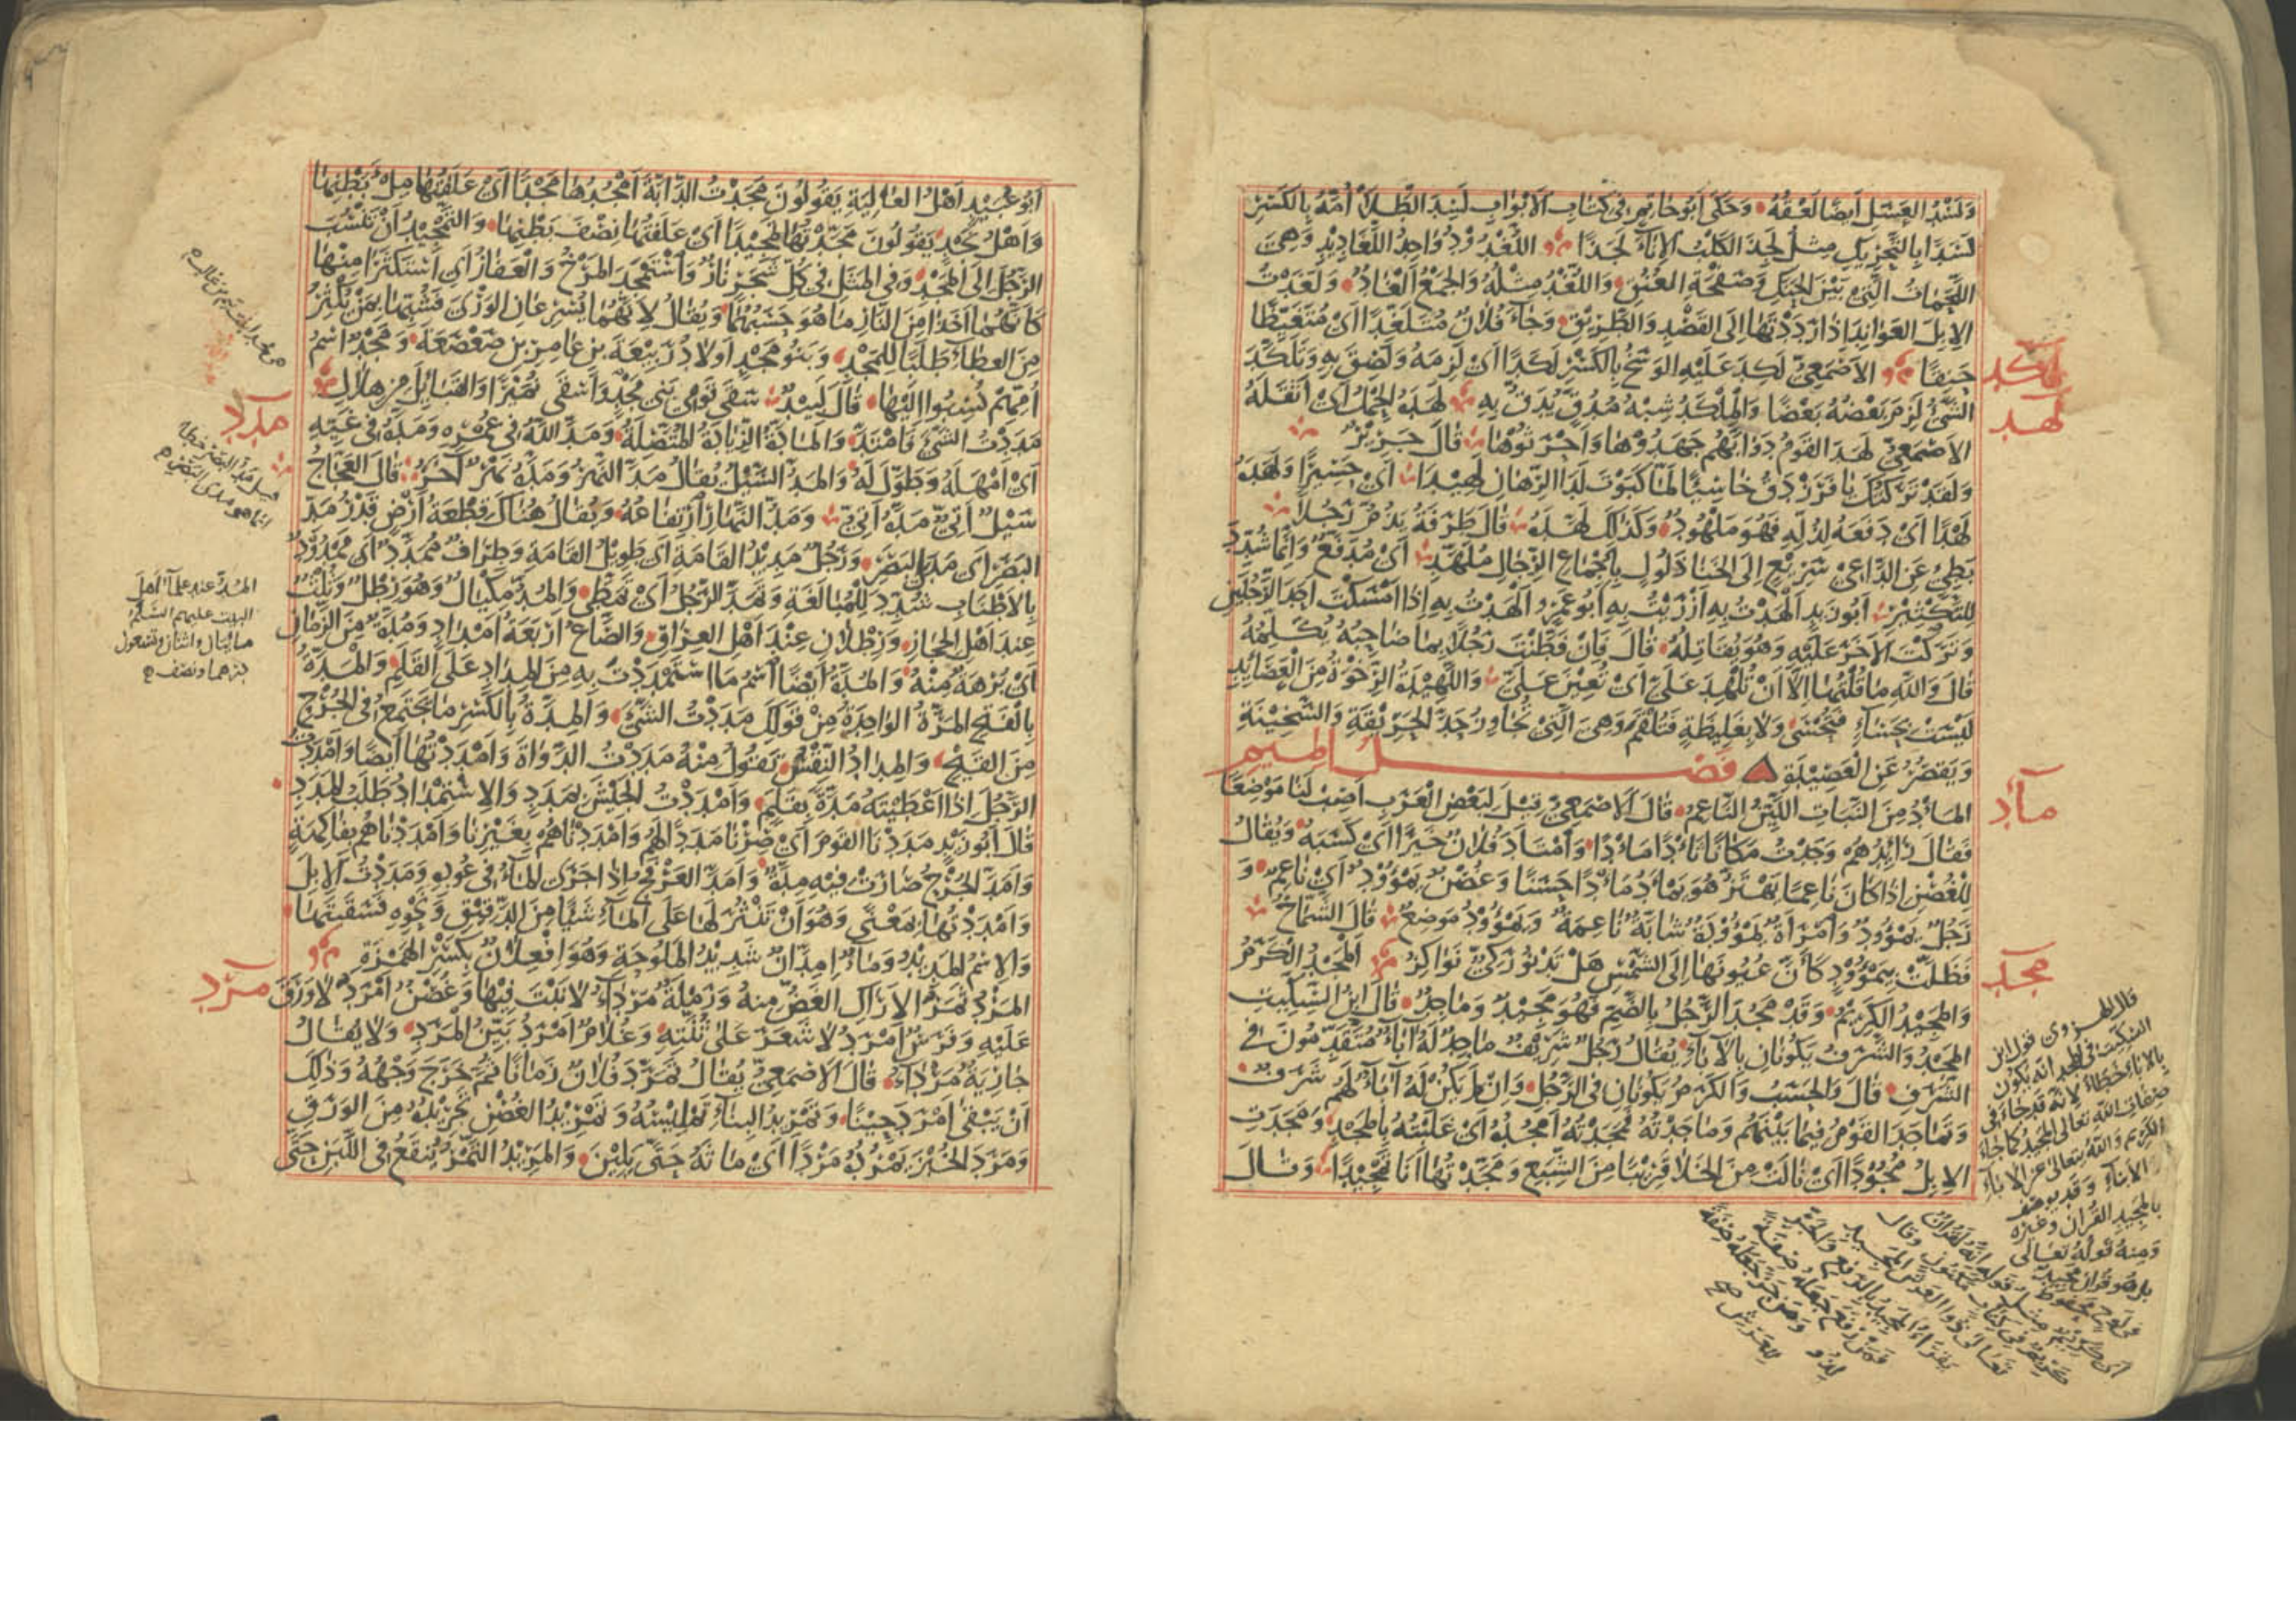 وَلَسَدَ العَسَلَ اَيضًا لَعِقَهُ وَحَكَى اَبُو حَاتِمٍ فِي كِتَابِ الاَبْوَابِ لَسِدَ الطَّلاَ اُمَّهُ بِالكَسْرِ
لَسَدًا بِالتَّحْرِيكِ مِثلُ لَجِذَ الكَلْبُ الاِنَاءَ لَجَذًا اللُّغْدُوْدُ وَاحِدُ اللَّغَادِيْدِ وَهِيَ
اللَّحَمَاتُ الَّتِي بَيْنَ الحَنَكِ وَصَفْحَةِ العُنُقِ وَاللُّغْدُ مِثْلُهُ وَالجَمْعُ اَلْغَادٌ وَلَغَدْتُ
الاِبِلَ العَوَانِدَ اِذَا رَدَدْتَهَا اِلَى القَصْدِ وَالطَّرِيْقِ وَجَاءَ فُلاَنٌ مُتَلَغِّدًا اَيْ مُتَغَيِّظًا
حَنِقًا الاَصْمَعِيُّ لَكِدَ عَلَيْهِ الوَسَخُ بِالكَسْرِ لَكَدًا اَيْ لَزِمَهُ وَلَصِقَ بِهِ وَتَلَكَّدَ
الشَّيْءُ لَزِمَ بَعْضُهُ بَعْضًا وَالمِلْكَدُ شِبْهُ مُدُقٍّ يُدَقُّ بِهِ لَهَدَهُ الحِمْلُ اَيْ اَثْقَلَهُ
الاَصْمَعِيُّ لَهَدَ القَوْمُ دَوَابَّهُمْ جَهَدُوْهَا وَاَحْرَثُوْهَا قَالَ جَرِيْرٌ
وَلَقَدْ تَرَكْتُكَ يَا فَرَزْدَقُ خَاسِئًا لَمَّا كَبَوْتَ لَدَا الرِّهَانِ لَهِيْدَا اَيْ حَسِيْرًا وَلَهَدَهُ
لَهْدًا اَيْ دَفَعَهُ لِذُلِّهِ فَهُوَ مَلْهُودٌ وَكَذَلِكَ لَهَّدَهُ قَالَ طَرَفَةُ يَذُمُّ رَجُلاً
بَطِيْءٍ عَنِ الدَّاعِي سَرِيْعٍ اِلَى الخَنَا ذَلُولٍ بِاَجْمَاعِ الرِّجَالِ مُلَهَّدِ اَيْ مُدَفَّعٌ وَاِنَّمَا شُدِّدَ
لِلتَّكْثِيْرِ اَبُو زَيدٍ اَلْهَدْتُ بِهِ اَزْرَيْتُ بِهِ اَبُو عَمْرٍو اَلْهَدْتُ بِهِ اِذَا اَمْسَكْتَ اَحَدَ الرَّجُلَيْنِ
وَتَرَكْتَ الآخَرَ عَلَيْهِ وَهُوَ يُقَاتِلُهُ قَالَ فَاِنْ فَطَّنْتَ رَجُلاً بِمَا صَاحِبُهُ يُكَلِّمُهُ
قَالَ وَاللهِ مَا قُلْتَهَا اِلاَّ اَنْ تُلْهِدَ عَلَيَّ اَيْ تُعِيْنَ عَلَيَّ وَاللَّهِيْدَةُ الرِّخْوَةُ مِنَ الْعَصَائِدِ
لَيْسَتْ بِحَسَاءٍ فَيُحْتَسَى وَلاَ بِغَلِيظَةٍ فَتُلْقَمَ وَهِيَ الَّتِي تُجَاوِزُ حَدَّ الحَرِيْقَةِ وَالسَّخِيْنَةِ
وَيَقْصُرُ عَنِ العَصِيْدَةِ فَصْلُ المِيمِ
المَأْدُ مِنَ النَّبَاتِ اللَّيِّنُ النَّاعِمُ قَالَ الاَصْمَعِيُّ قِيْلَ لِبَعْضِ العَرَبِ اَصِبْ لَنَا مَوْضِعًا
فَقَالَ رَائِدُهُمْ وَجَدْتُ مَكَانًا ثَأْدًا مَأْدًا وَامْتَأَدَ فُلاَنٌ خَيْرًا اَيْ كَسَبَهُ وَيُقَالُ
لِلْغُصْنِ اِذَا كَانَ نَاعِمًا يَهْتَزُّ هُوَ يَمْأَدُ مَأْدًا حَسَنًا وَغُصْنٌ يَمْؤُوْدٌ اَيْ نَاعِمٌ وَ
رَجُلٌ يَمْؤُوْدٌ وَاَمْرَاَةٌ يَمْؤُوْدَةٌ شَابَّةٌ نَاعِمَةٌ وَيَمْؤُوْدٌ مَوضِعٌ قَالَ الشَّمَّاخُ
فَظَلَّتْ بِيَمْؤُوْدٍ كَاَنَّ عُيُونَهَا اِلَى الشَّمْسِ هَلْ تَدْنُو رُكِيٌّ نَوَاكِزُ اَلْمَجْدُ الْكَرَمُ
وَالمَجِيْدُ الكَرِيْمُ وَقَدْ مَجُدَ الرَّجُلُ بِالضَّمِّ فَهُوَ مَجِيْدٌ وَمَاجِدٌ قَالَ ابْنُ السِّكِّيتِ
المَجْدُ وَالشَّرَفُ يَكُونَانِ بِالآبَاءِ يُقَالُ رَجُلٌ شَرِيْفٌ مَاجِدٌ لَهُ آبَاءٌ مُتَقَدِّمُونَ فِي
الشَّرَفِ قَالَ وَالحَسَبُ وَالكَرَمُ يَكُونَانِ فِي الرَّجُلِ وَاِنْ لَمْ يَكُنْ لَهُ آبَاءٌ لَهُمْ شَرَفٌ
وَتَمَاجَدَ القَوْمُ فِيمَا بَيْنَهُمْ وَمَاجَدْتُهُ فَمَجَدْتُهُ اَمْجُدُهُ اَيْ غَلَبْتُهُ بِالمَجْدِ وَمَجَدَتِ
الاِبِلُ مُجُوْدًا اَيْ نَالَتْ مِنَ الخَلاَ قَرِيْبًا مِنَ الشِّبَعِ وَمَجَّدْتُهَا اَنَا تَمْجِيْدًا وَقَالَ
لكد
لهد
مأد
مجد
قال الهروي قول ابن
السكيت في المجد انه يكون
بالاباء خطاء لانه قد جاء في
صفات الله تعالى المجيد كما جاء
الكريم والله يتعالى عن الاباء
وقد يوصف
بالمجيد القرآن وغيره
ومنه قوله تعالى
بل هو قرآن مجيد
في لوح محفوظ
اَبُو عُبَيْدٍ اَهْلُ العَالِيَةِ يَقُولُونَ مَجَدْتُ الدَّابَّةَ اَمْجُدُهَا مَجْدًا اَيْ عَلَفْتُهَا مِلْءَ بَطْنِهَا
وَاَهْلُ نَجْدٍ يَقُولُونَ مَجَّدْتُهَا تَمْجِيْدًا اَيْ عَلَفْتُهَا نِصْفَ بَطْنِهَا وَالتَّمْجِيْدُ اَنْ تَنْسُبَ
الرَّجُلَ اِلَى المَجْدِ وَفِي المَثَلِ فِي كُلِّ شَجَرٍ نَارٌ وَاسْتَمْجَدَ المَرْخُ وَالعَفَارُ اَيِ اسْتَكْثَرَا مِنْهَا
كَاَنَّهُمَا اَخَذَا مِنَ النَّارِ مَا هُوَ حَسْبُهُمَا وَيُقَالُ لاَنَّهُمَا يُسْرِعَانِ الوَرْيَ فَشُبِّهَا بِمَنْ يُكْثِرُ
مِنَ العَطَاءِ طَلَبًا لِلْمَجْدِ وَبَنُو مَجْدٍ اَولاَدُ رَبِيْعَةَ بنِ عَامِرِ بنِ صَعْصَعَةَ وَمَجْدٌ اسْمُ
اُمِّهِمْ نُسِبُوا اِلَيْهَا قَالَ لَبِيْدٌ سَقَى قَوْمِي بَنِي مَجْدٍ وَاَسْقَى نُمَيْرًا وَالقَبَائِلَ مِنْ هِلاَلِ
مَدَدْتُ الشَّيْءَ فَامْتَدَّ وَالمَادَّةُ الزِّيَادَةُ المُتَّصِلَةُ وَمَدَّ اللهُ فِي عُمُرِهِ وَمَدَّهُ فِي غَيِّهِ
اَيْ اَمْهَلَهُ وَطَوَّلَ لَهُ وَالمَدُّ السَّيْلُ يُقَالُ مَدَّ النَّهْرُ وَمَدَّهُ نَهْرٌ آخَرُ قَالَ العَجَّاجُ
سَيْلٌ اَتِيٌّ مَدَّهُ اَتِيُّ وَمَدُّ النَّهَارِ ارْتِفَاعُهُ وَيُقَالُ هُنَاكَ قِطْعَةُ اَرْضٍ قَدْرُ مَدِّ
البَصَرِ اَيْ مَدَى البَصَرِ وَرَجُلٌ مَدِيْدُ القَامَةِ اَيْ طَوِيْلُ القَامَةِ وَطِرَافٌ مُمَدَّدٌ اَيْ مَمْدُوْدٌ
بِالاَطْنَابِ شُدِّدَ لِلْمُبَالَغَةِ وَتَمَدَّدَ الرَّجُلُ اَيْ تَمَطَّى وَالمُدُّ مِكْيَالٌ وَهُوَ رِطْلٌ وَثُلُثٌ
عِنْدَ اَهْلِ الحِجَازِ وَرِطْلاَنِ عِنْدَ اَهْلِ العِرَاقِ وَالصَّاعُ اَرْبَعَةُ اَمْدَادٍ وَمُدَّةٌ مِنَ الزَّمَانِ
اَيْ بُرْهَةٌ مِنْهُ وَالمُدَّةُ اَيْضًا اسْمُ مَا اسْتَمْدَدْتَ بِهِ مِنَ المِدَادِ عَلَى القَلَمِ وَالمَدَّةُ
بِالفَتْحِ المَرَّةُ الوَاحِدَةُ مِنْ قَوْلِكَ مَدَدْتُ الشَّيْءَ وَالمِدَّةُ بِالكَسْرِ مَا يَجْتَمِعُ فِي الجُرْحِ
مِنَ القَيْحِ وَالمِدَادُ النِّقْسُ تَقُولُ مِنْهُ مَدَدْتُ الدَّوَاةَ وَاَمْدَدْتُهَا اَيضًا وَاَمْدَدْتُ
الرَّجُلَ اِذَا اَعْطَيْتَهُ مَدَّةً بِقَلَمٍ وَاَمْدَدْتُ الجَيْشَ بِمَدَدٍ وَالاِسْتِمْدَادُ طَلَبُ المَدَدِ
قَالَ اَبُو زَيْدٍ مَدَدْنَا القَوْمَ اَيْ صِرْنَا مَدَدًا لَهُمْ وَاَمْدَدْنَاهُمْ بِغَيْرِنَا وَاَمْدَدْنَاهُمْ بِفَاكِهَةٍ
وَاَمَدَّ الجُرْحُ صَارَتْ فِيْهِ مِدَّةٌ وَاَمَدَّ العَرْفَجُ اِذَا جَرَى المَاءُ فِي عُودِهِ وَمَدَدْتُ الاِبِلَ
وَاَمْدَدْتُهَا بِمَعْنًى وَهُوَ اَنْ تَنْثُرَ لَهَا عَلَى المَاءِ شَيْئًا مِنَ الدَّقِيْقِ وَنَحْوِهِ فَتَسْقِيَهَا
وَالاِسْمُ المَدِيْدُ وَمَاءٌ اِمِدَّانٌ شَدِيْدُ المُلُوحَةِ وَهُوَ اِفْعِلاَنٌ بِكَسْرِ الهَمْزَةِ
المَرْدُ ثَمَرُ الاَرَاكِ الغَضُّ مِنْهُ وَرَمْلَةٌ مَرْدَاءُ لاَ نَبْتَ فِيْهَا وَغُصْنٌ اَمْرَدُ لاَ وَرَقَ
عَلَيْهِ وَفَرَسٌ اَمْرَدُ لاَ شَعَرَ عَلَى ثُنَّتِهِ وَغُلاَمٌ اَمْرَدُ بَيِّنُ المَرَدِ وَلاَ يُقَالُ
جَارِيَةٌ مَرْدَاءُ قَالَ الاَصْمَعِيُّ يُقَالُ تَمَرَّدَ فُلاَنٌ زَمَانًا ثُمَّ خَرَجَ وَجْهُهُ وَذَلِكَ
اَنْ يَبْقَى اَمْرَدَ حِيْنًا وَتَمْرِيدُ البِنَاءِ تَمْلِيْسُهُ وَتَمْرِيْدُ الغُصْنِ تَجْرِيْدُهُ مِنَ الوَرَقِ
وَمَرَدَ الخُبْزَ يَمْرُدُهُ مَرْدًا اَيْ مَاثَهُ حَتَّى يَلِيْنَ وَالمَرِيْدُ التَّمْرُ يُنْقَعُ فِي اللَّبَنِ حَتَّى
مدد
المد عند علماء اهل
البيت عليهم السلم
مرد